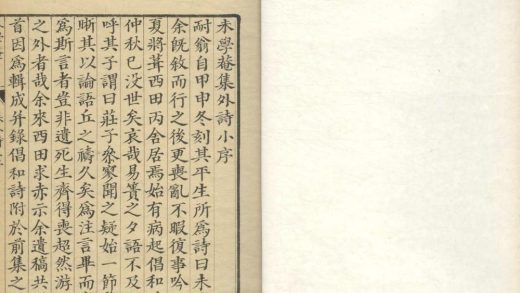 未學菴集外詩小序
耐翁自甲申冬刻其平生所爲詩曰未
余既敘而行之後更喪亂不暇復事吟
夏將葺西田丙舍居焉始有病起倡和
仲秋巳没世矣哀哉易簀之夕語不及
呼其子謂曰莊子參寥聞之疑始一節
晰其以論語丘之禱久矣爲注言畢而
爲斯言者豈非遺死生齊得喪超然游
之外者哉余來西田求赤示余遺稿共
首因爲輯成并錄倡和詩附於前集之